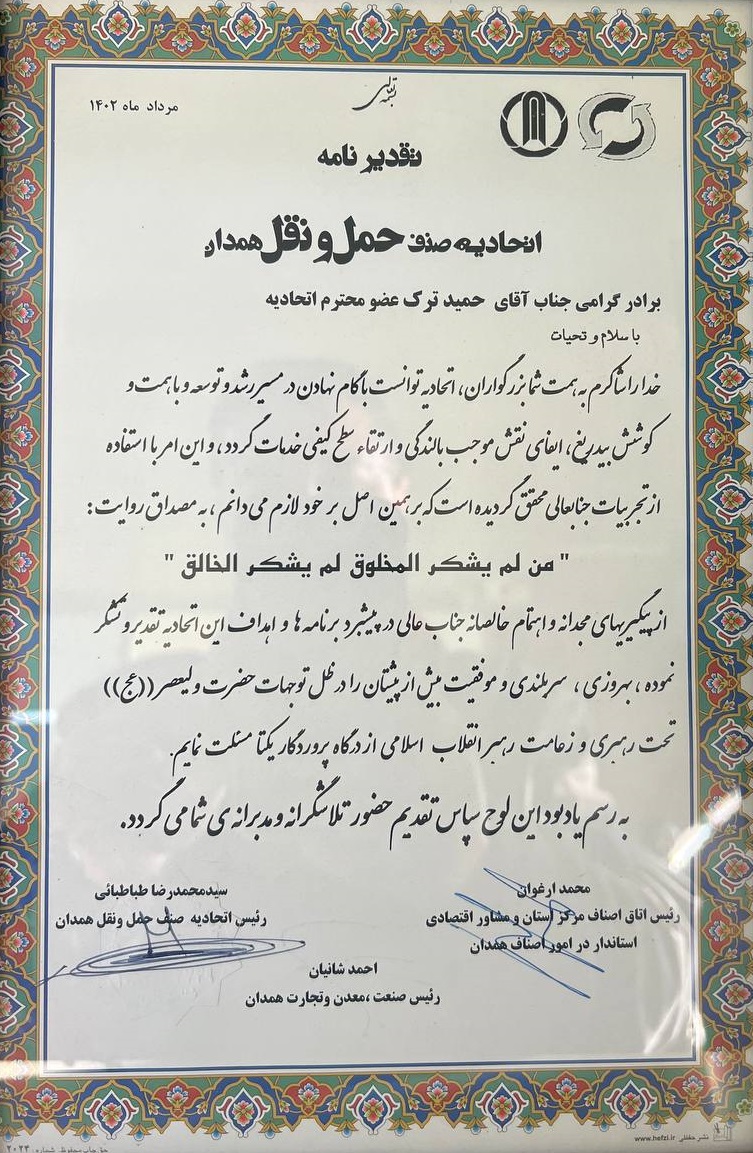 بسمه تعالی
مرداد ماه ۱۴۰۲
تقدیر نامه
اتحادیه صنف حمل و نقل همدان
برادر گرامی جناب آقای حمید ترک عضو محترم اتحادیه
با سلام و تحیات
خدا را شاکرم به همت شما بزرگواران، اتحادیه توانست با گام نهادن در مسیر رشد و توسعه و با همت و
کوشش بیدریغ، ایفای نقش موجب بالندگی و ارتقاء سطح کیفی خدمات گردد، و این امر با استفاده
از تجربیات جنابعالی محقق گردیده است که بر همین اصل بر خود لازم می دانم، به مصداق روایت:
" من لم یشکر المخلوق لم یشکر الخالق "
از پیگیریهای مجدانه و اهتمام خالصانه جناب عالی در پیشبرد برنامه ها و اهداف این اتحادیه تقدیر و تشکر
نموده، بهروزی، سربلندی و موفقیت بیش از پیشتان را در ظل توجهات حضرت ولیعصر ((عج))
تحت رهبری و زعامت رهبر انقلاب اسلامی از درگاه پروردگار یکتا مسئلت نمایم.
به رسم یادبود این لوح سپاس تقدیم حضور تلاشگرانه و مدبرانه ی شما می گردد.
محمد ارغوان
رئیس اتاق اصناف مرکز استان و مشاور اقتصادی
استاندار در امور اصناف همدان
سیدمحمدرضا طباطبائی
رئیس اتحادیه صنف حمل ونقل همدان
احمد شانیان
رئیس صنعت ،معدن وتجارت همدان
نشر حفظی www.hefzi.ir
حق چاپ محفوظ شماره: ۲۰۲۴